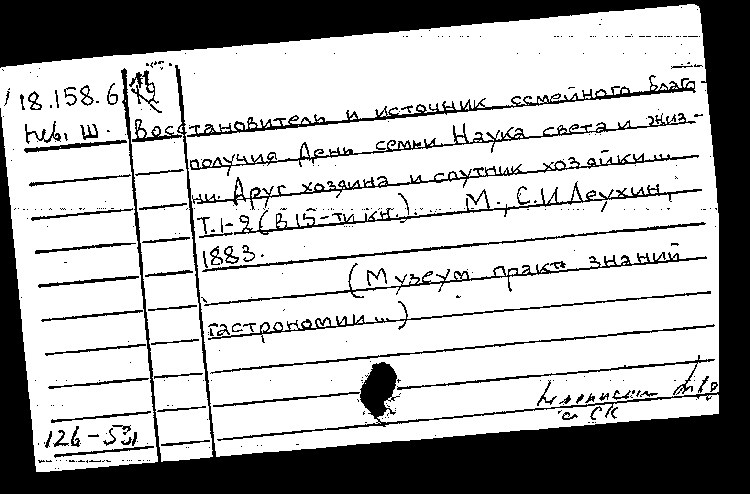 18.158.6.
Восстановитель и источник семейного благо-
получия. День семьи. Наука света и жиз-
ни. Друг хозяина и спутник хозяйки...
Т.1-2 (В 15-ти кн.). М., С.И Леухин,
1883.
(Музеум практ знаний
гастрономии...)
с СК
126-53